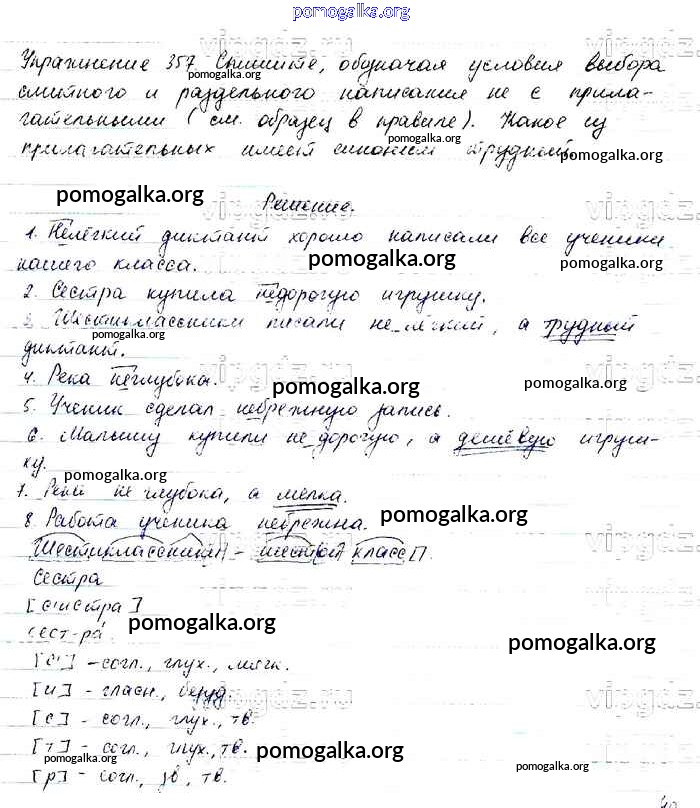 pomogalka.org
Упражнение 357 Спишите, обозначая условия выбора
pomogalka.org
слитного и раздельного написания не с прила-
гательными (см. образец в правиле). Какое из
pomogalka.org
прилагательных имеет синоним трудный.
pomogalka.org
pomogalka.org
Решение.
vipgdz.ru
1. Нелёгкий диктант хорошо написали все ученики
нашего класса.
pomogalka.org
pomogalka.org
2. Сестра купила недорогую игрушку.
3 Шестиклассники писали не лёгкий, а трудный
pomogalka.org
диктант.
4. Река неглубока.
pomogalka.org
pomogalka.org
5. Ученик сделал небрежную запись.
6. Малышу купили не дорогую, а дешёвую игруш-
ку.
pomogalka.org
7. Река не глубока, а мелка.
8. Работа ученика небрежна.
pomogalka.org
Шестиклассники - шестой класс
vipgdz.ru
Сестра
[с'истра]
сест-ра́
pomogalka.org
pomogalka.org
[с'] - согл., глух., мягк.
[и] - гласн., безуд.
vipgdz.ru
[с] - согл., глух., тв.
[т] - согл., глух., тв.
pomogalka.org
pomogalka.org
[р] - согл., зв, тв.
pomogalka.org